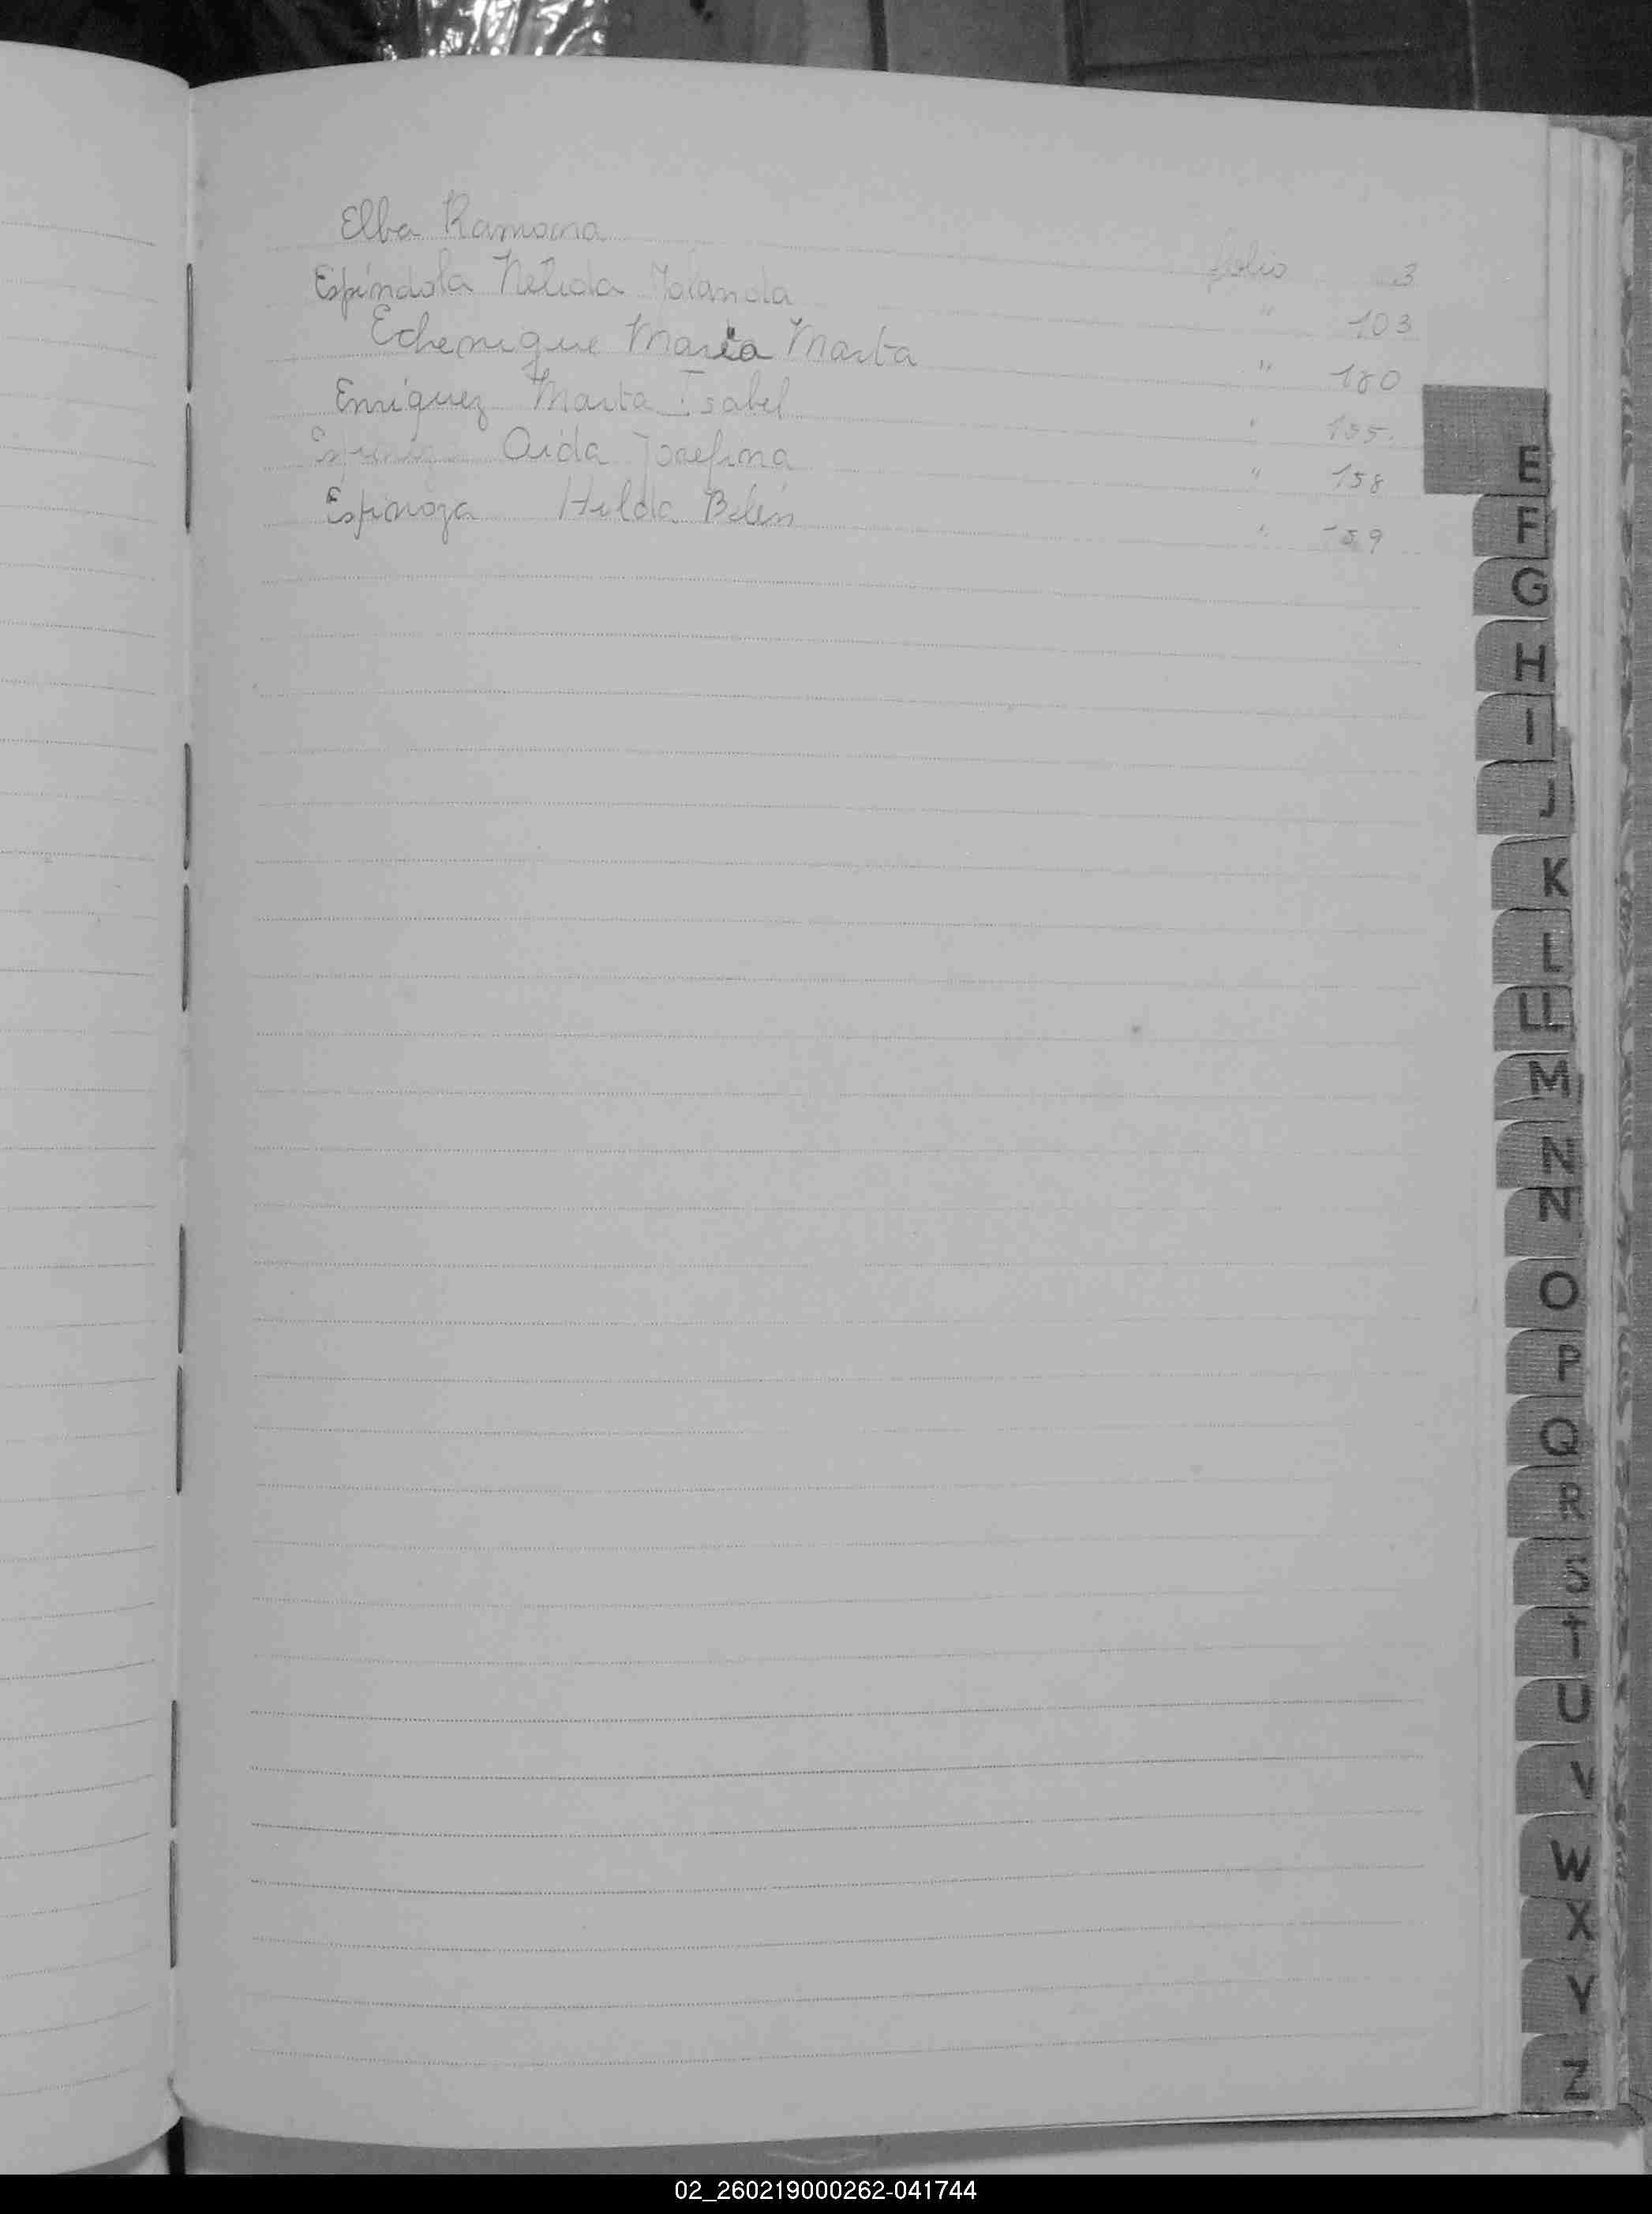 Elba Ramona folio 3
Espíndola Nelida Yolanda " 103
Echenique Maria Marta " 180
Enriquez Marta Isabel "
Aida Josefina " 158
Espinoza Hilda Belén " 159
E
F
G
H
I
J
K
L
LL
M
N
Ñ
O
P
Q
R
S
T
U
V
W
X
Y
Z
02_260219000262-041744